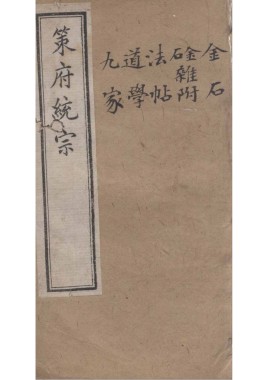 金石
金石雜附
法帖
道學
九家
策府統宗